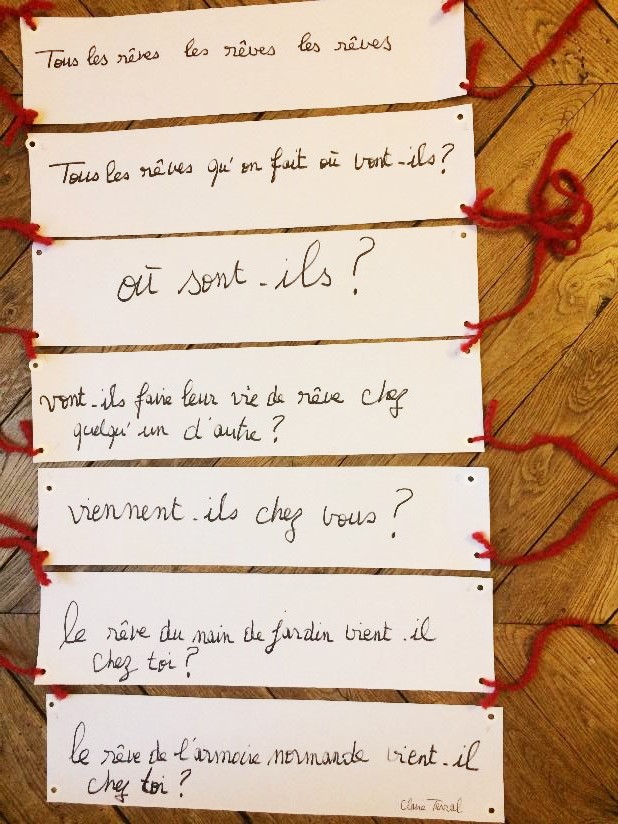 Tous les rêves les rêves les rêves
Tous les rêves qu'on fait où vont-ils?
où sont-ils ?
vont-ils faire leur vie de rêve chez
quelqu'un d'autre ?
viennent-ils chez vous ?
le rêve du nain de jardin vient-il
chez toi ?
le rêve de l'armoire normande vient-il
chez toi ?
Claire